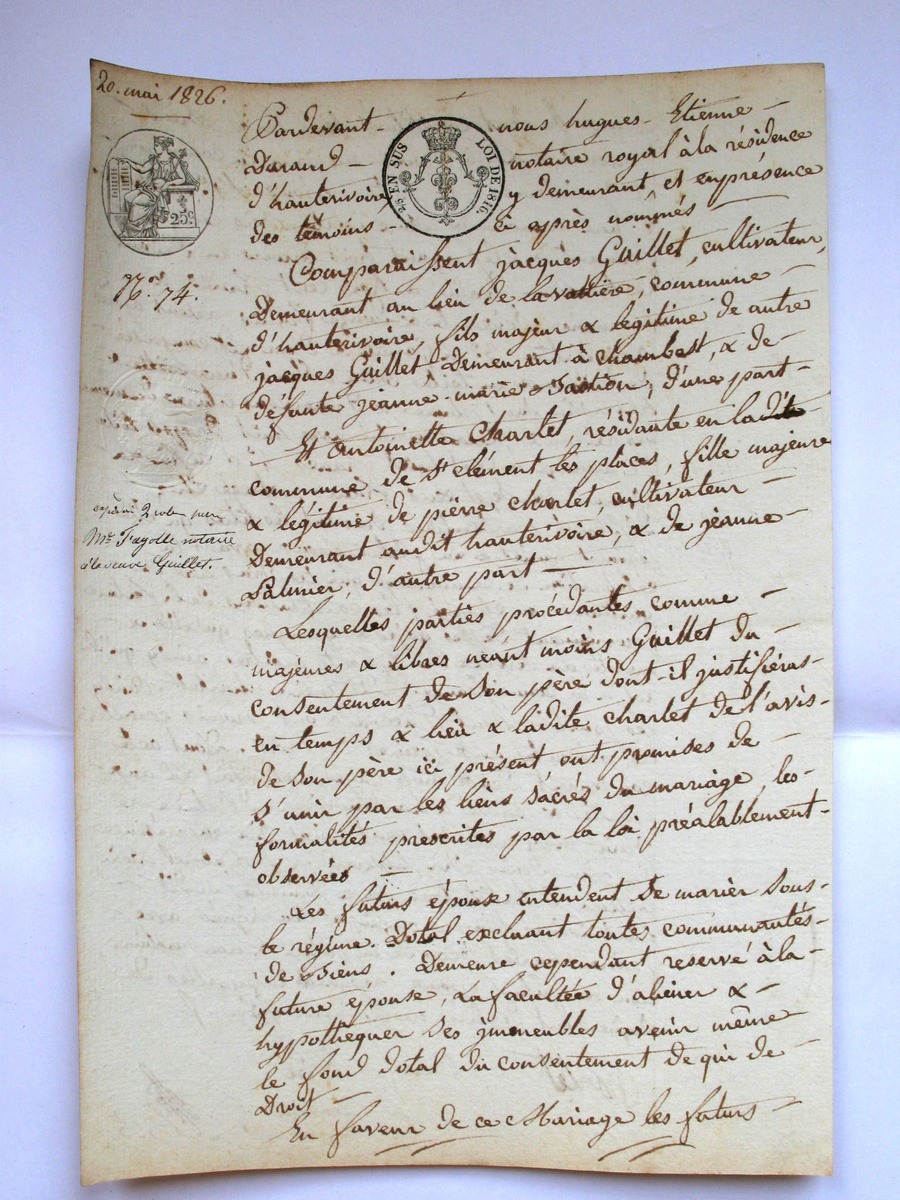 20. mai 1826.
25c
EN SUS LOI DE 1816.
No. 74.
expédié 2 rôles pour
Me. Fayolle notaire
à la veuve Guillet.
Pardevant nous hugues Etienne
Durand notaire royal à la résidence
d'hauterivoire, y demeurant, et en présence
des témoins ci après nommés
Comparaissent jacques Guillet, cultivateur,
Demeurant au lieu de la vallière, commune
d'hauterivoire, fils majeur & légitime de autre
jacques Guillet Demeurant à chambost, & de
défunte jeanne-marie, d'une part
Et antoinette Charlet, résidante en ladite
commune de St clément les places, fille majeure
& légitime de pierre charlet, cultivateur
Demeurant audit hauterivoire, & de jeanne
Palmier, d'autre part
Lesquelles parties procédantes comme
majeures & libres néant moins Guillet du
consentement de son père dont-il justifiéras
en temps & lieu & ladite charlet de l'avis
de son père ici présent ont promises de
s'unir par les liens sacrés du mariage, les
formalités prescrites par la loi préalablement
observées
Les futurs épouse entendent se marier sous
le régime Dotal excluant toutes communautés
de Biens. Demeure cependant reservé à la
future épouse, La facultée d'aliéner &
hypothéquer ses jmmeubles avenir même
le fond dotal du consentement de qui de
Droit
En faveur de ce Mariage les futurs